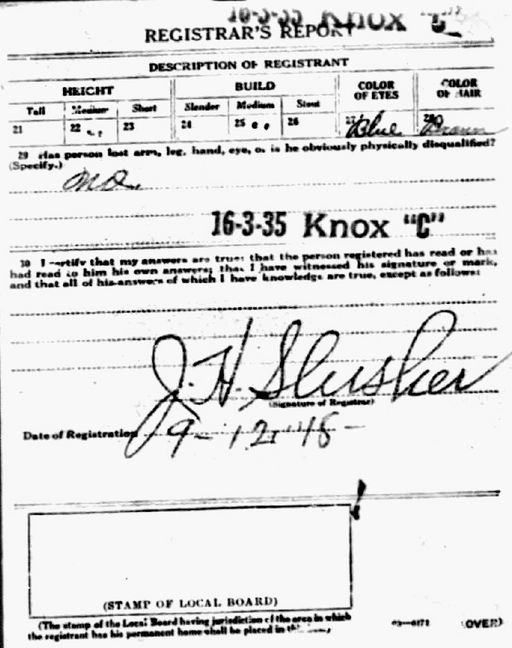 16-3-35 Knox "C"
REGISTRAR'S REPORT
DESCRIPTION OF REGISTRANT
HEIGHT BUILD COLOR OF EYES COLOR OF HAIR
Tall Medium Short Slender Medium Stout
21 22 23 24 25 26 27 Blue 28 Brown
29 Has person lost arm, leg, hand, eye, or is he obviously physically disqualified?
(Specify.)
no.
16-3-35 Knox "C"
30 I certify that my answers are true; that the person registered has read or has
had read to him his own answers; that I have witnessed his signature or mark,
and that all of his answers of which I have knowledge are true, except as follows:
J. H. Slusher
(Signature of Registrar)
Date of Registration 9-12-18-
(STAMP OF LOCAL BOARD)
(The stamp of the Local Board having jurisdiction of the area in which
the registrant has his permanent home shall be placed in
03—6171 (OVER)